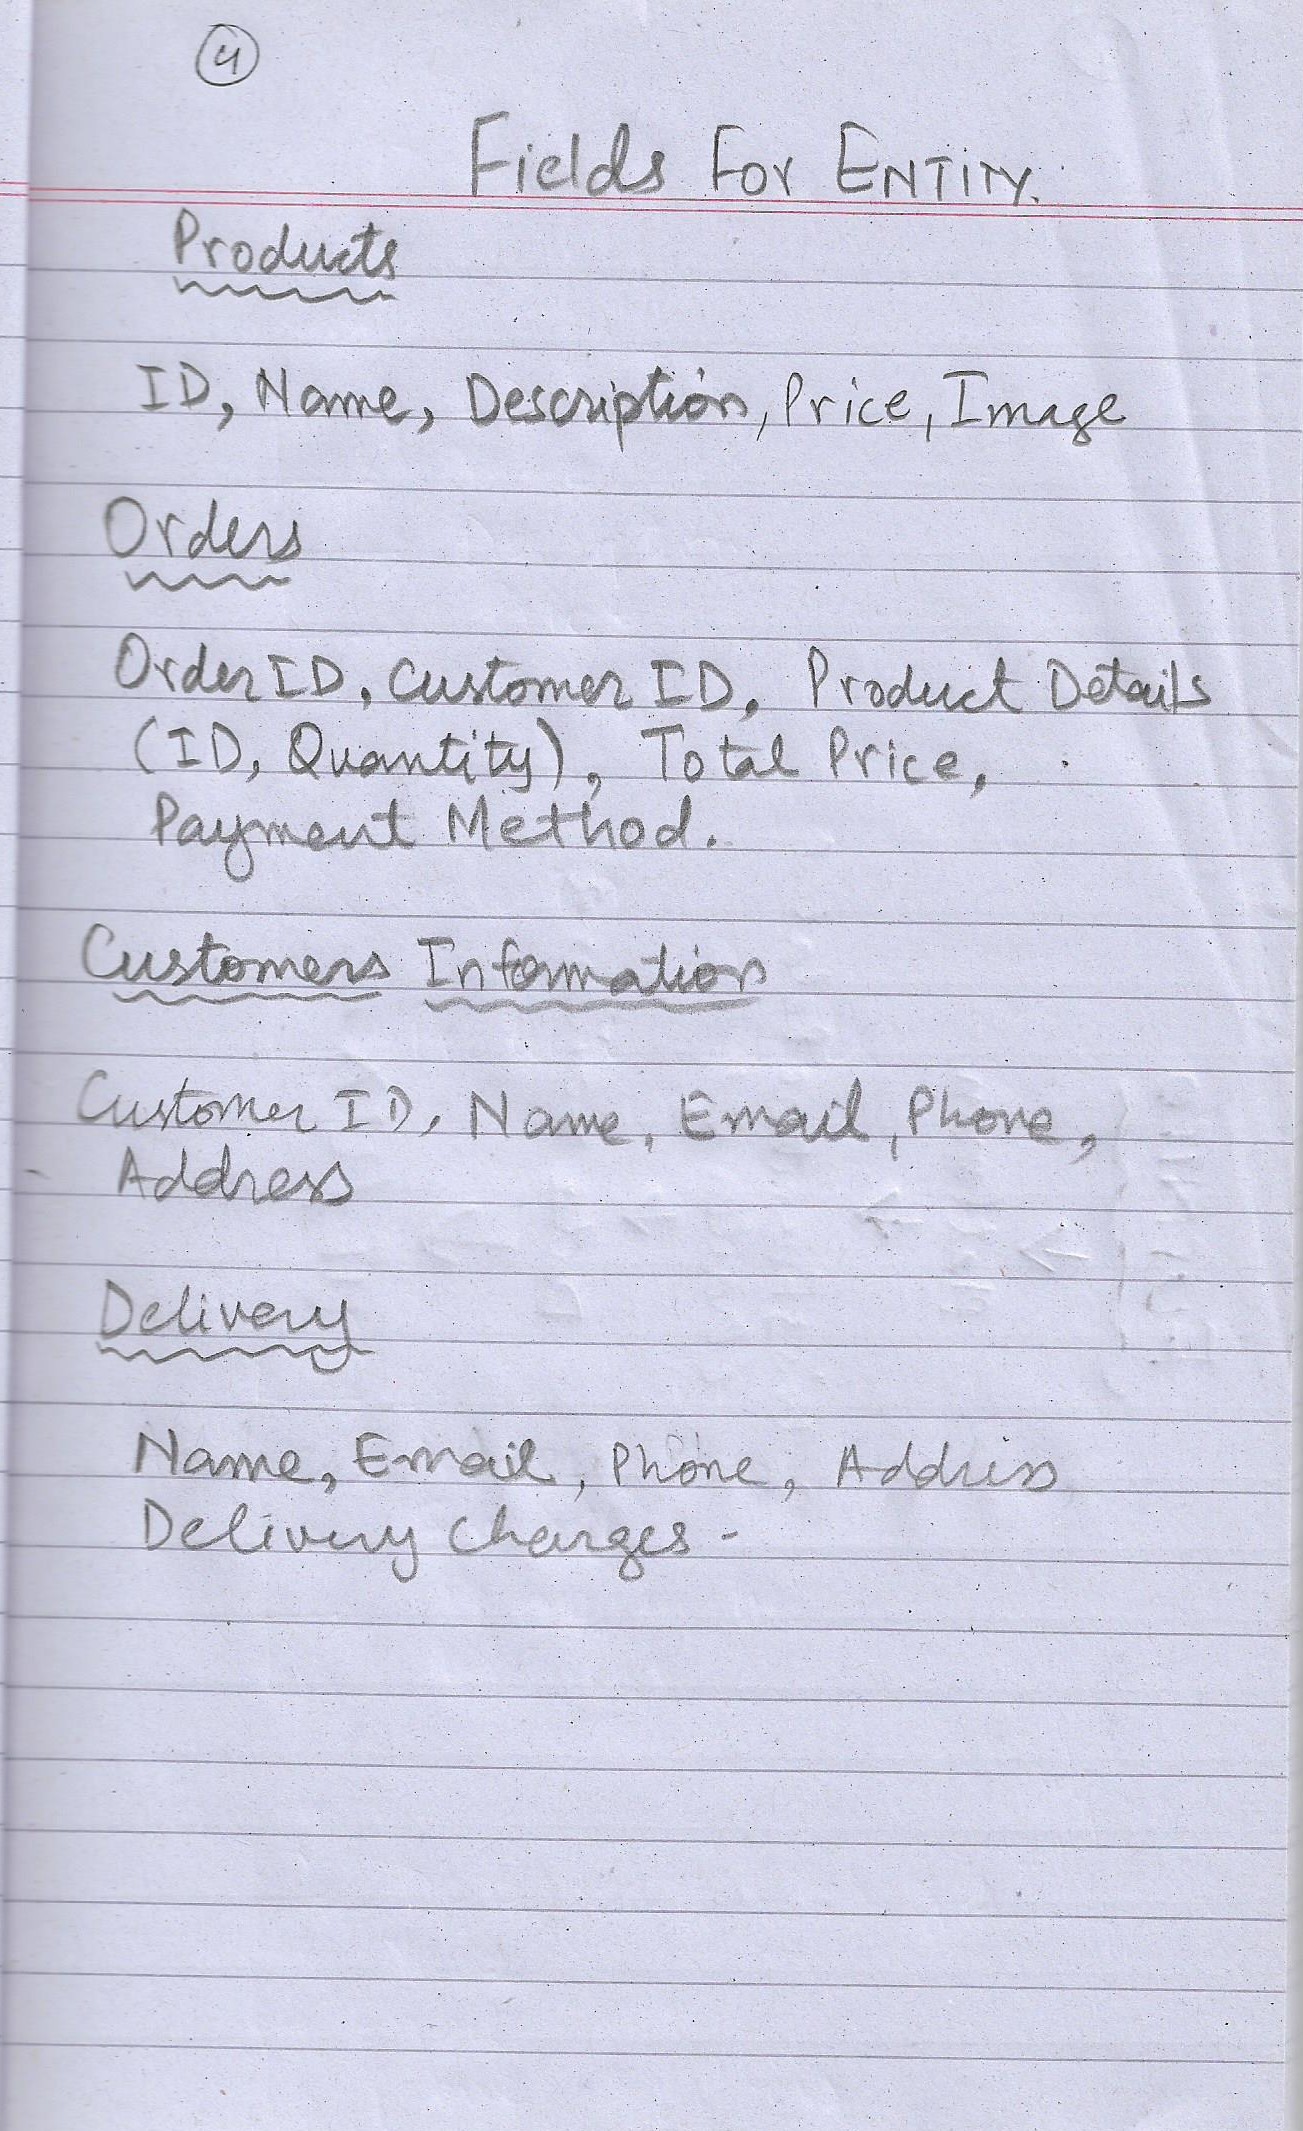 4
Fields For ENTITY.
Products
ID, Name, Description, Price, Image
Orders
Order ID, Customer ID, Product Details
(ID, Quantity), Total Price,
Payment Method.
Customers Information
Customer ID, Name, Email, Phone,
Address
Delivery
Name, Email, Phone, Address
Delivery Charges -